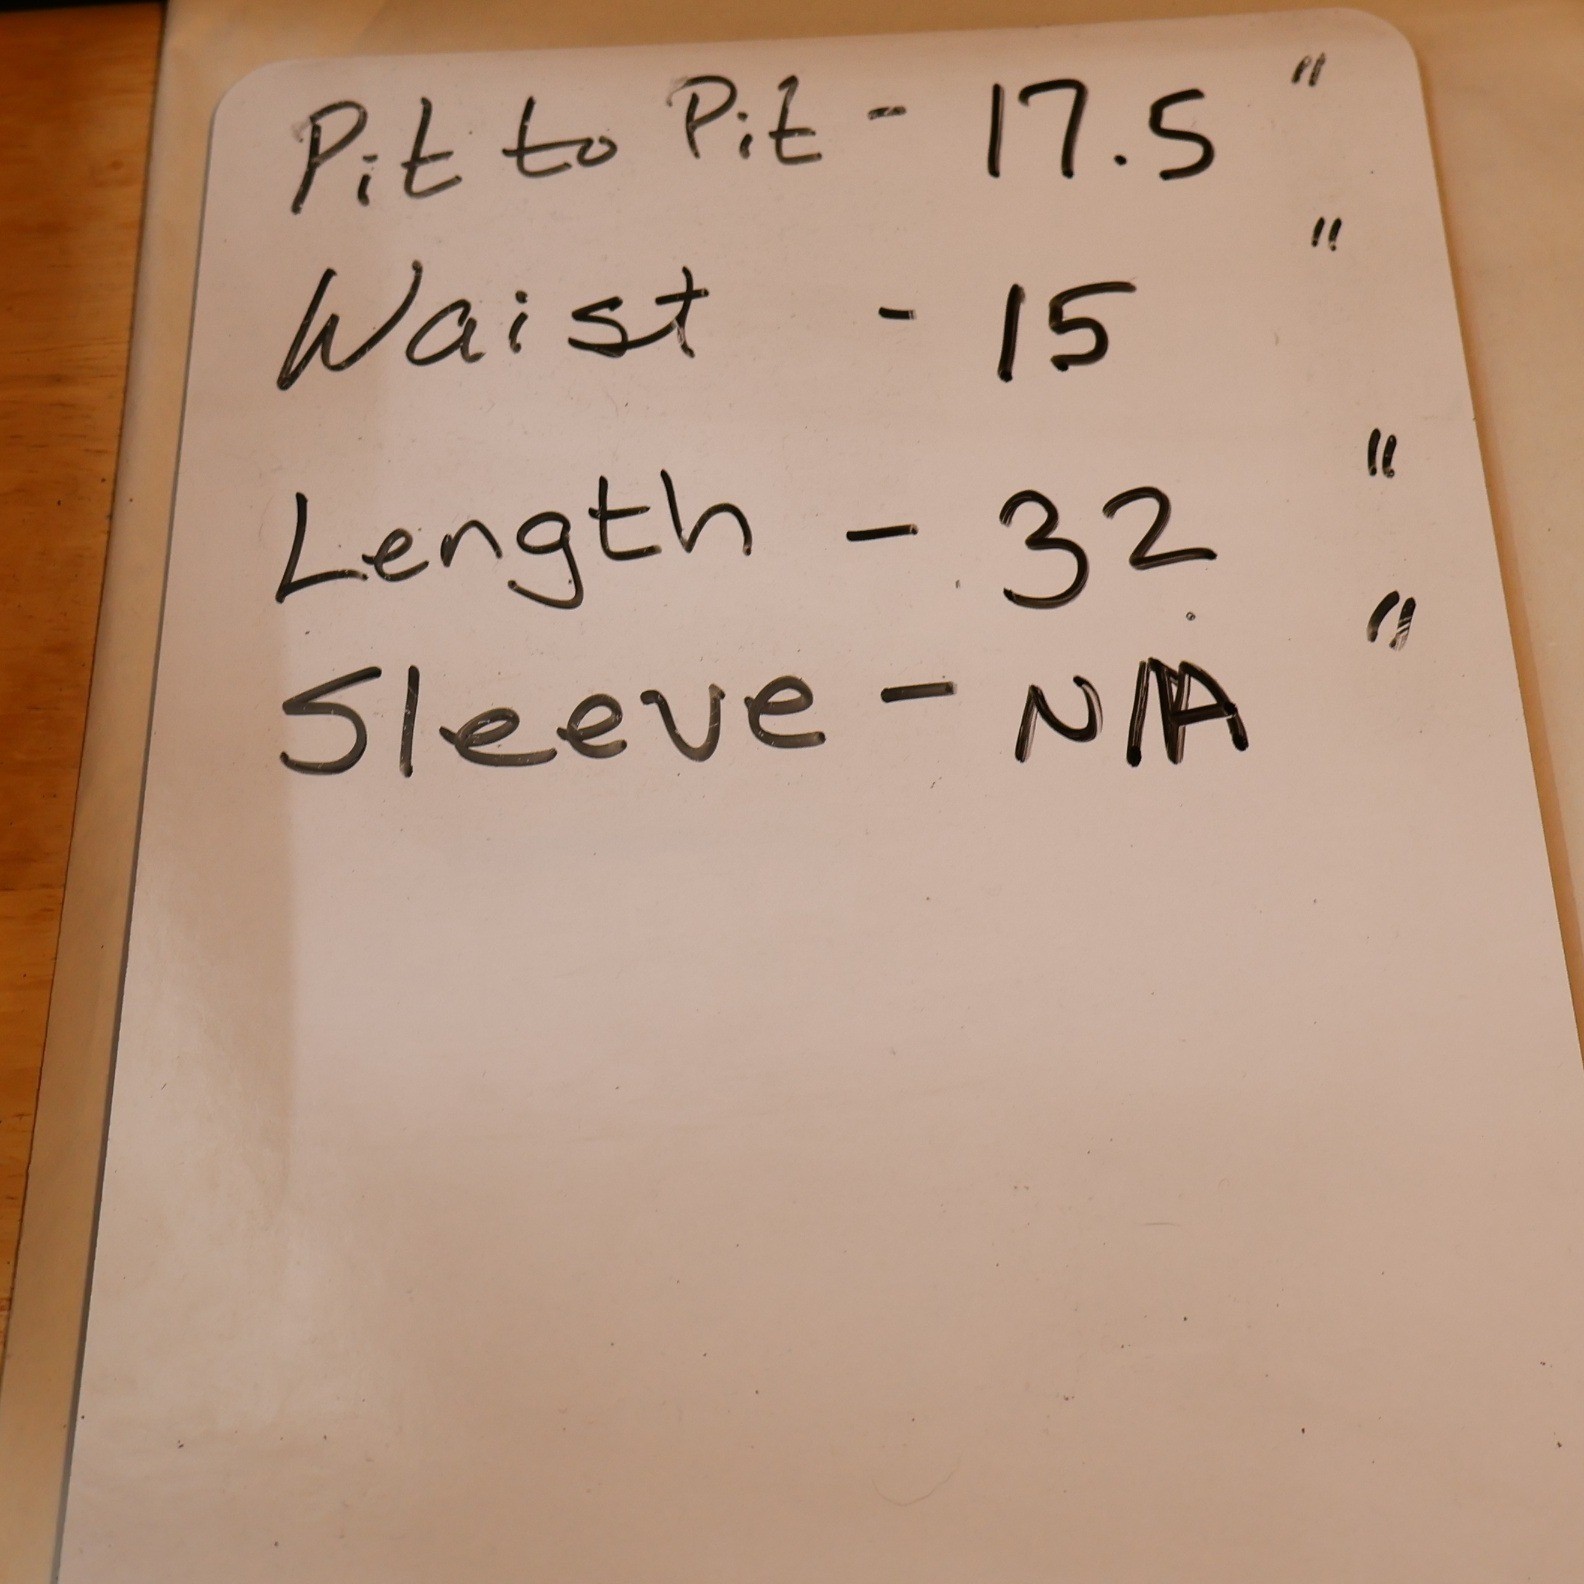 Pit to Pit - 17.5"
Waist - 15"
Length - 32"
Sleeve - N/A"